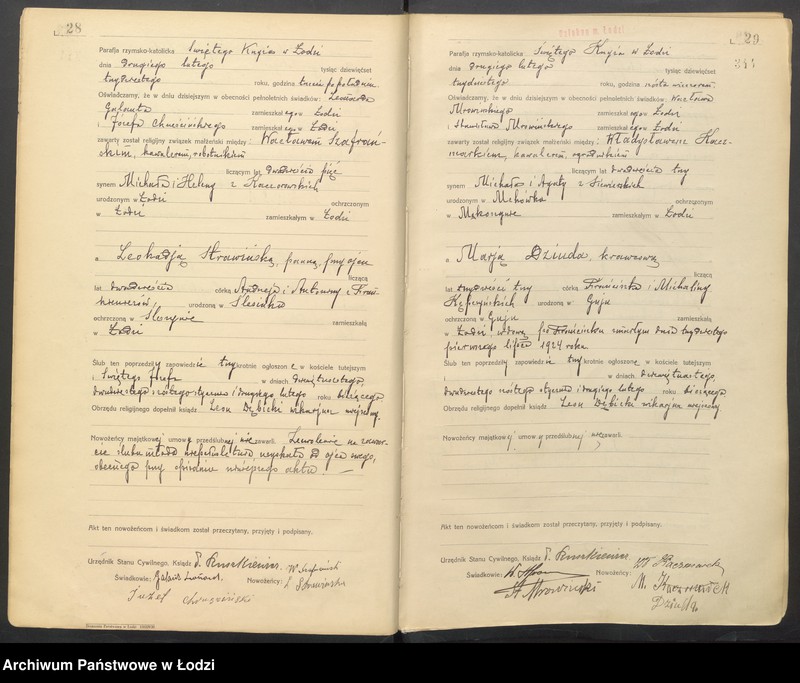 28
Parafja rzymsko-katolicka Świętego Kazimierza w Łodzi
dnia drugiego lutego tysiąc dziewięćset
trzydziestego roku, godzina trzecia po południu.
Oświadczamy, że w dniu dzisiejszym w obecności pełnoletnich świadków: Leonarda
zamieszkałego w Łodzi
i Józefa zamieszkałego w Łodzi
zawarty został religijny związek małżeński między: Wacławem Szafrań-
skim, kawalerem, robotnikiem
liczącym lat dwadzieścia pięć
synem Michała i Heleny z Kaczorowskich
urodzonym w Łodzi ochrzczonym
w Łodzi zamieszkałym w Łodzi
a Leokadją Strawińską, panną, przy ojcu
liczącą
lat dwadzieścia córką Andrzeja i Antoniny z
urodzoną w Ślesinku
ochrzczoną w Ślesinie zamieszkałą
w Łodzi
Ślub ten poprzedziły zapowiedzie trzykrotnie ogłoszone w kościele tutejszym
i Świętego Józefa w dniach dziewiętnastego,
dwudziestego szóstego stycznia i drugiego lutego roku bieżącego
Obrzędu religijnego dopełnił ksiądz Leon Dębicki wikarjusz miejscowy.
Nowożeńcy majątkowej umowy przedślubnej nie zawarli. Zezwolenie na zawar-
cie ślubu młoda niepełnoletnia uzyskała od ojca swego,
obecnego przy niniejszego aktu. —
Akt ten nowożeńcom i świadkom został przeczytany, przyjęty i podpisany.
Urzędnik Stanu Cywilnego, Ksiądz
Świadkowie: Nowożeńcy: W. Szafrański
L. Strawińska
Józef
29
344
Parafja rzymsko-katolicka Świętego Kazimierza w Łodzi
dnia drugiego lutego tysiąc dziewięćset
trzydziestego roku, godzina szósta wieczorem.
Oświadczamy, że w dniu dzisiejszym w obecności pełnoletnich świadków: Wacława
Mrowińskiego zamieszkałego w Łodzi
i Stanisława Mrowińskiego zamieszkałego w Łodzi
zawarty został religijny związek małżeński między: Władysławem Kacz-
markiem, kawalerem, ogrodnikiem
liczącym lat dwadzieścia trzy
synem Michała i Agaty z
urodzonym w ochrzczonym
w zamieszkałym w Łodzi
a Marją Dziuda, krawcową
liczącą
lat trzydzieści trzy córką Franciszka i Michaliny
urodzoną w
ochrzczoną w zamieszkałą
w Łodzi wdową po Franciszku zmarłym dnia trzydziestego
pierwszego lipca 1924 roku
Ślub ten poprzedziły zapowiedzie trzykrotnie ogłoszone w kościele tutejszym
i w dniach dziewiętnastego,
dwudziestego szóstego stycznia i drugiego lutego roku bieżącego
Obrzędu religijnego dopełnił ksiądz Leon Dębicki wikarjusz miejscowy
Nowożeńcy majątkowej umowy przedślubnej nie zawarli.
Akt ten nowożeńcom i świadkom został przeczytany, przyjęty i podpisany.
Urzędnik Stanu Cywilnego, Ksiądz
Świadkowie: Nowożeńcy: Wł Kaczmarek
St. Mrowiński M. Kaczmarek
Dziuda
Archiwum Państwowe w Łodzi